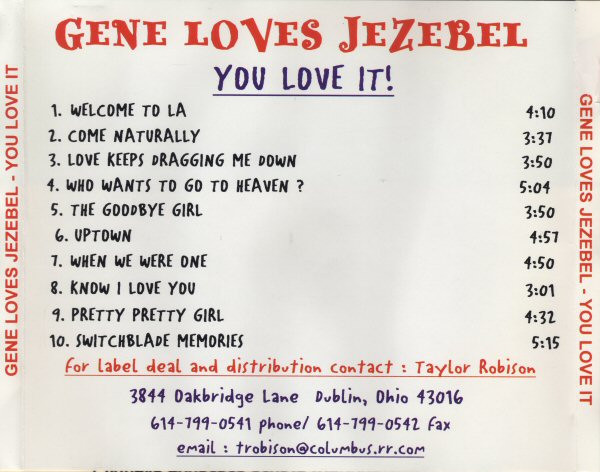 GENE LOVES JEZEBEL
YOU LOVE IT!
1. WELCOME TO LA 4:10
2. COME NATURALLY 3:37
3. LOVE KEEPS DRAGGING ME DOWN 3:50
4. WHO WANTS TO GO TO HEAVEN ? 5:04
5. THE GOODBYE GIRL 3:50
6. UPTOWN 4:57
7. WHEN WE WERE ONE 4:50
8. KNOW I LOVE YOU 3:01
9. PRETTY PRETTY GIRL 4:32
10. SWITCHBLADE MEMORIES 5:15
for label deal and distribution contact : Taylor Robison
3844 Oakbridge Lane Dublin, Ohio 43016
614-799-0541 phone/ 614-799-0542 fax
email : trobison@columbus.rr.com
GENE LOVES JEZEBEL - YOU LOVE IT
GENE LOVES JEZEBEL - YOU LOVE IT